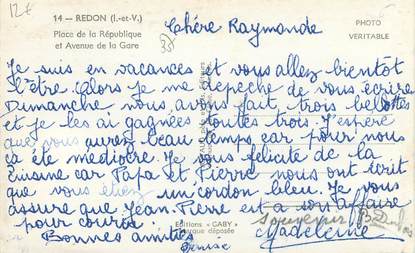 12€
14 — REDON (I.-et-V.)
Place de la République
et Avenue de la Gare
35
PHOTO
VERITABLE
Chére Raymonde
Je suis en vacances et vous allez bientôt
l'être. Alors je me dépeche de vous écrire
Dumanche nous avons fait trois belottes
et je les ai gagnées toutes trois. J'espère
que vous aurez beau temps car pour nous
ça été médiocre. Je vous félicite de la
cuisine car Papa et Pierre nous ont écrit
que vous étiez un cordon bleu. Je vous
assure que Jean. Pierre est a son affaire
pour courir
Bonnes amitiés
Denise
Editions "GABY"
Marque déposée
Souvenir
Madeleine